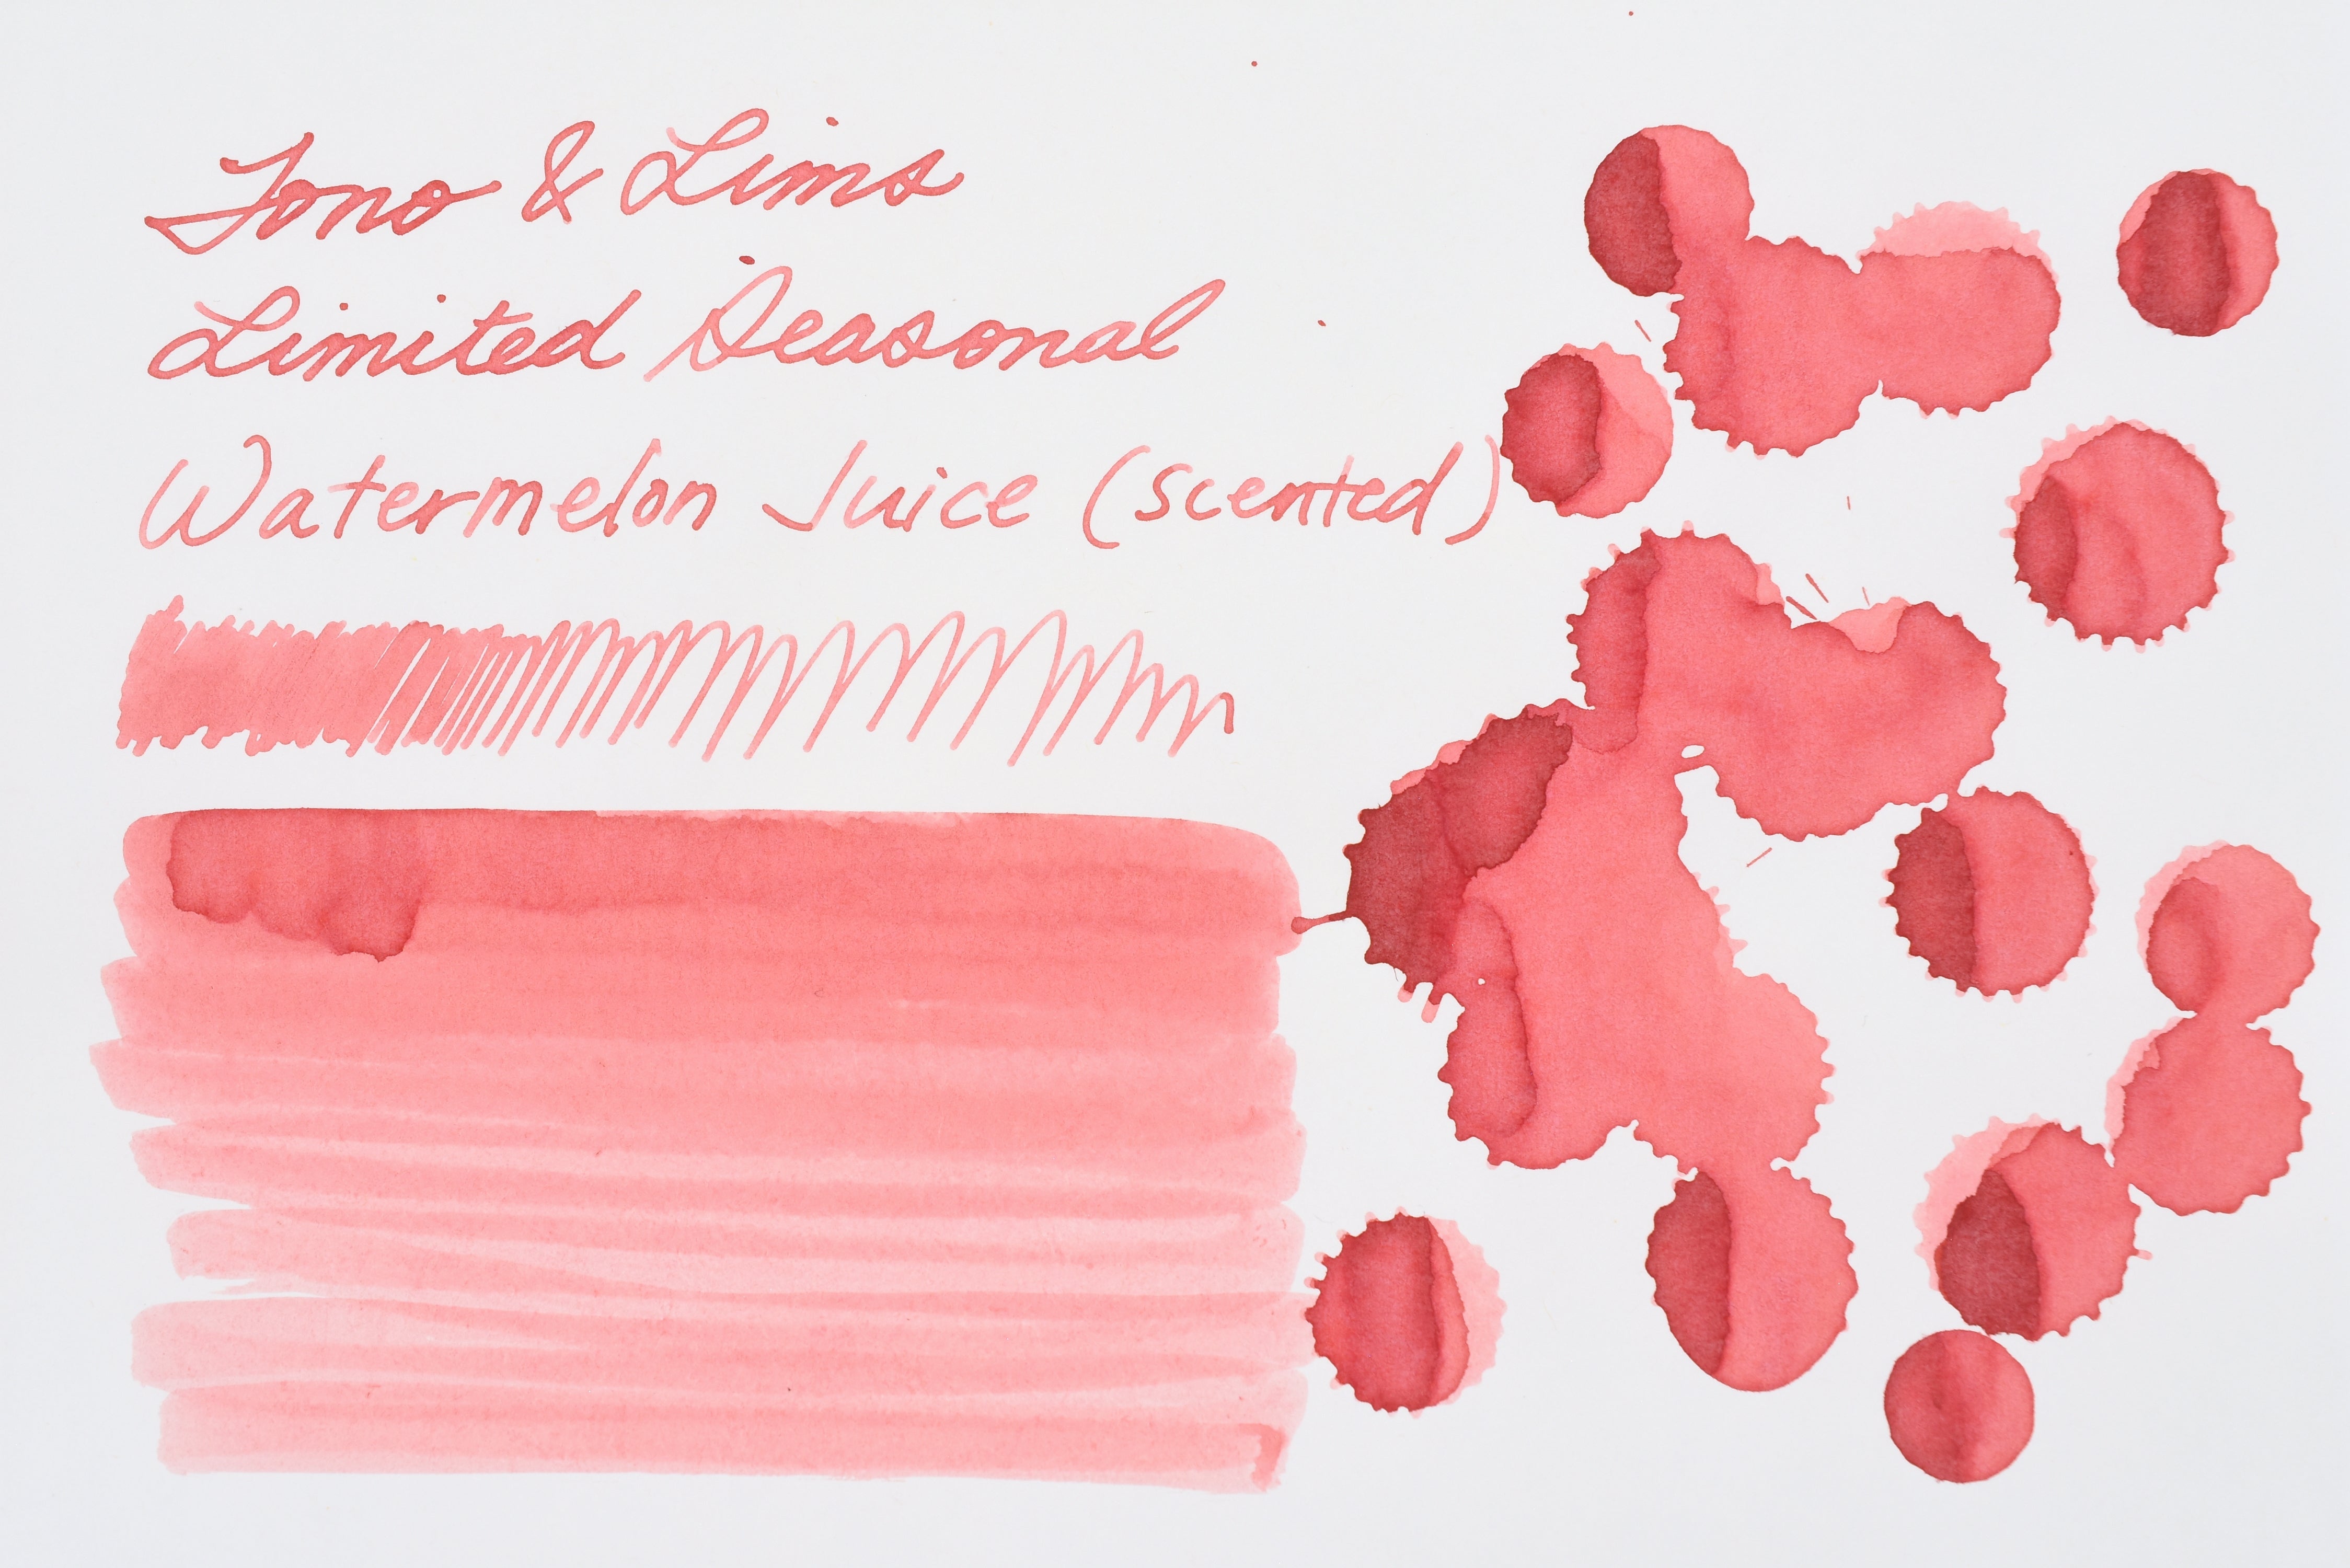 Tono & Lims
Limited Seasonal
Watermelon Juice (scented)